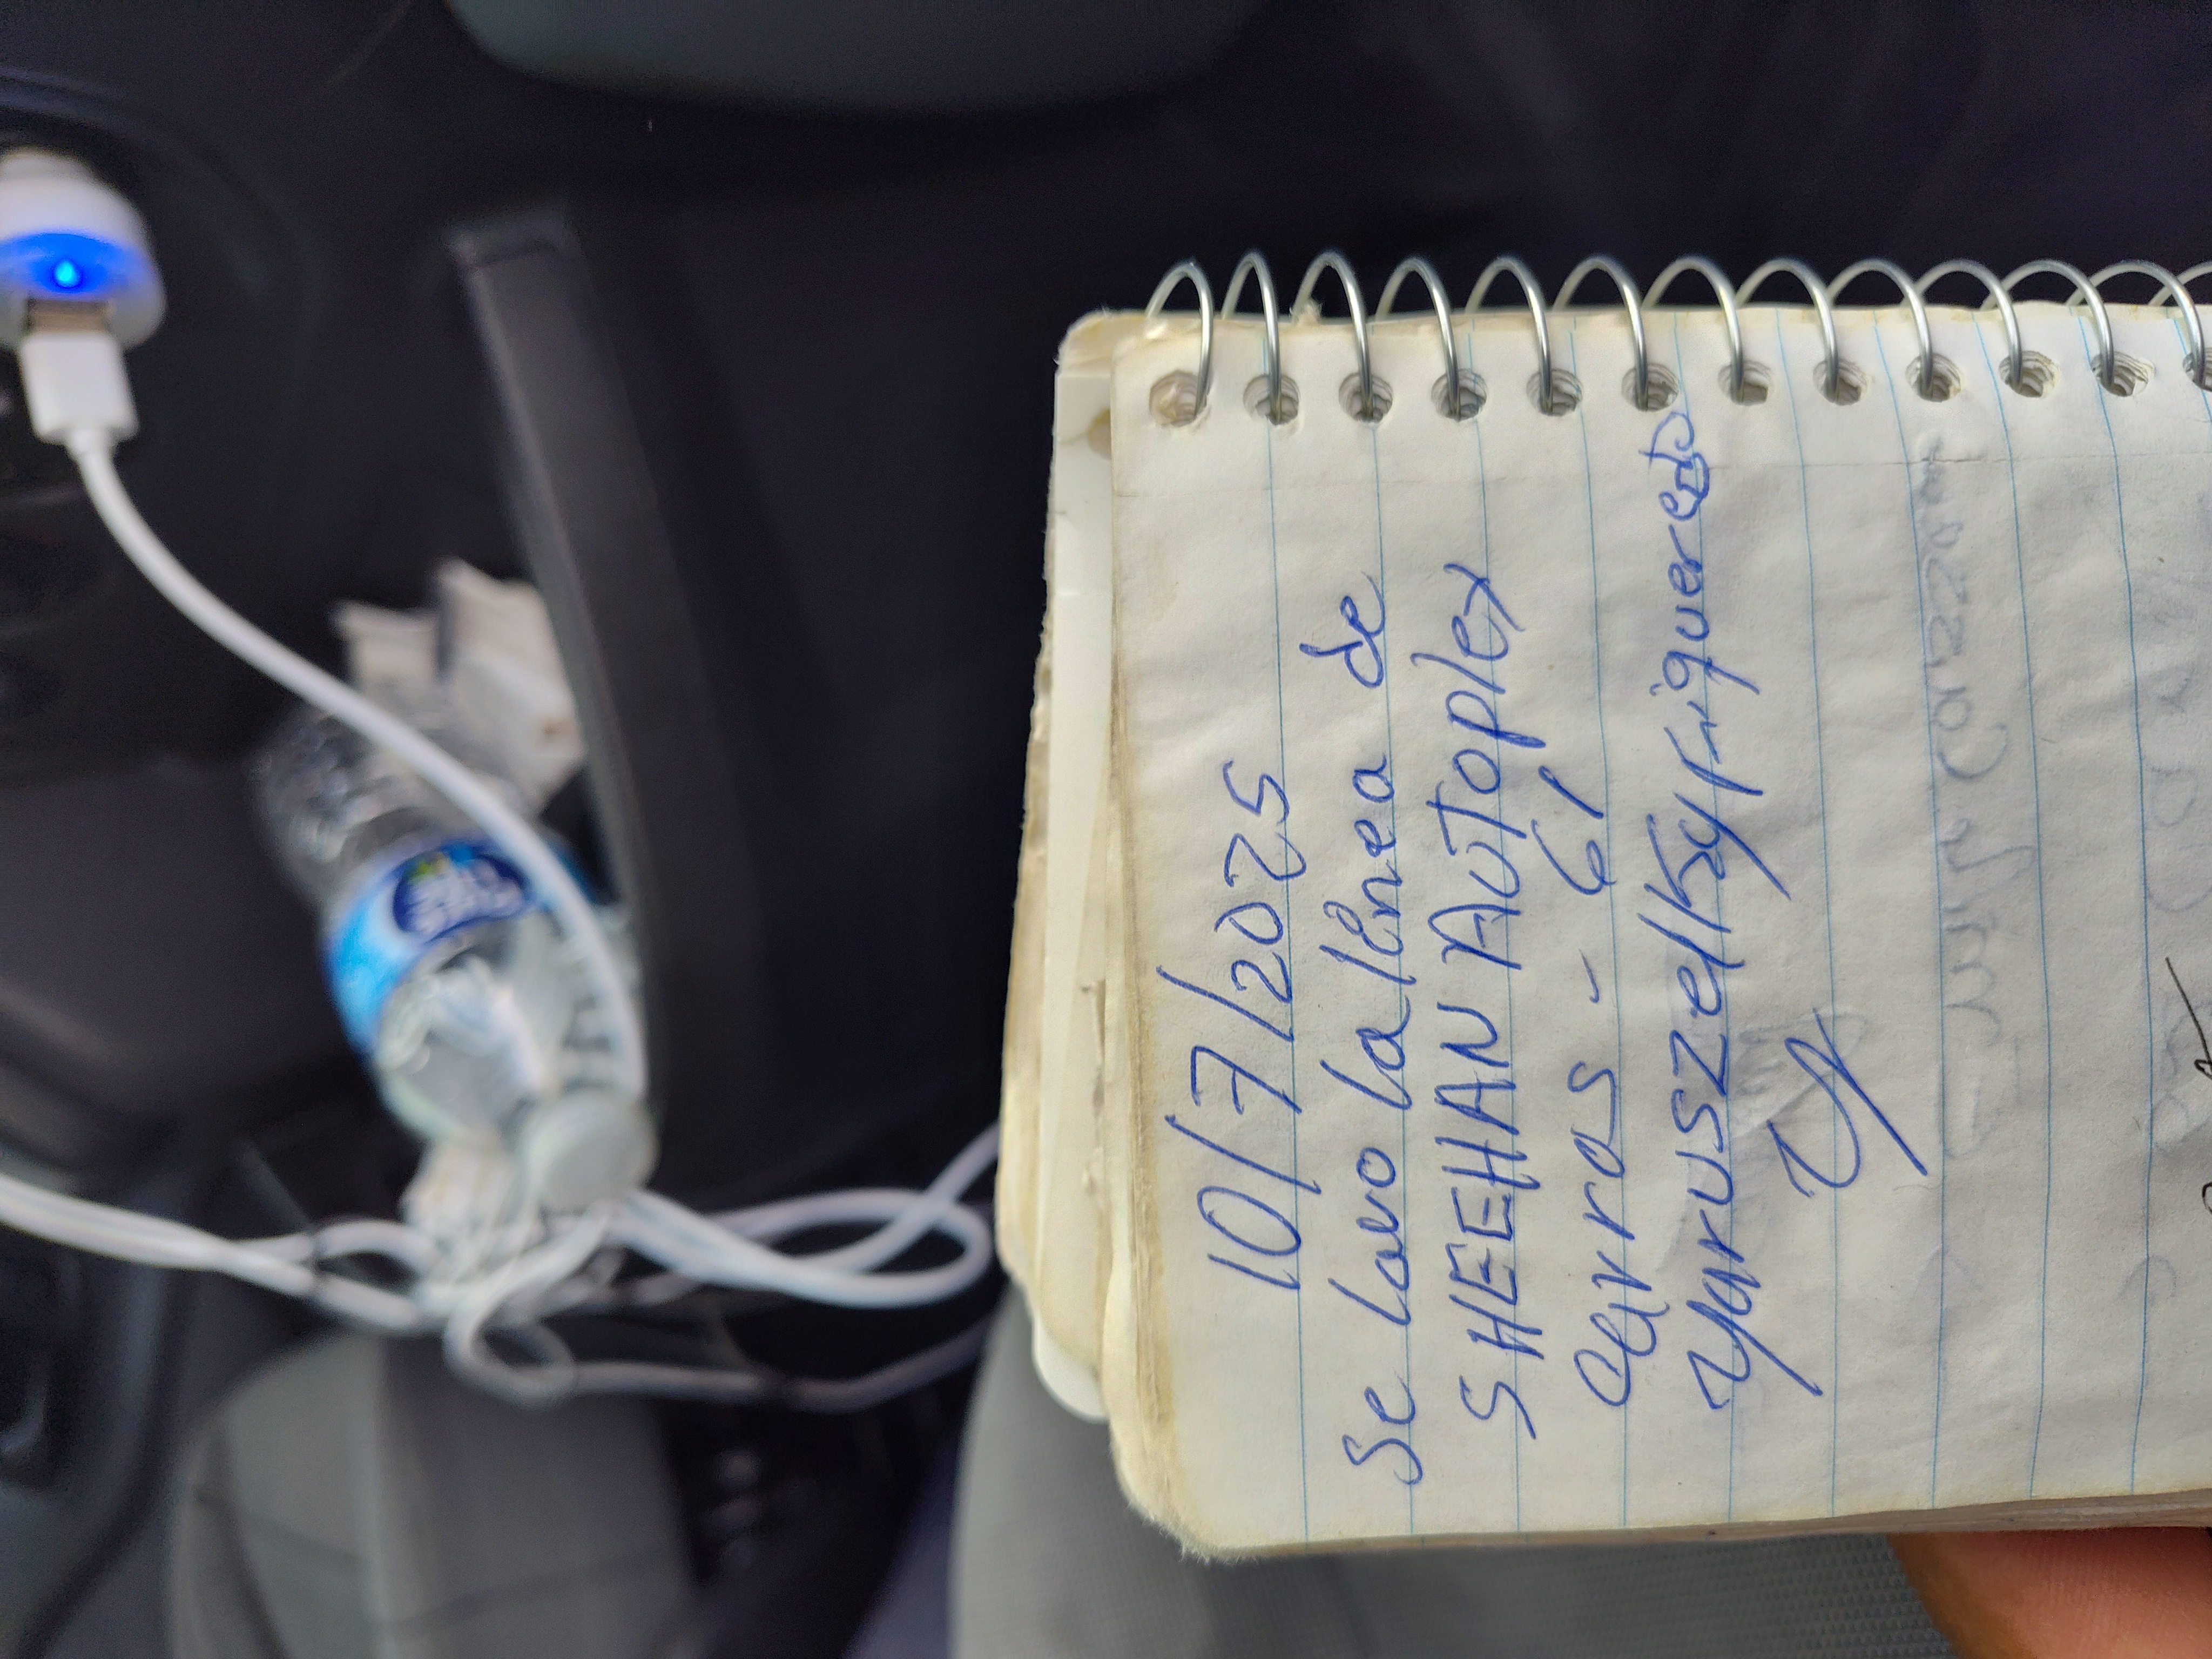 10/7/2025
Se lavo la línea de
SHEEHAN AUToplex
Carros - 61
Yaruszelky Figueredo